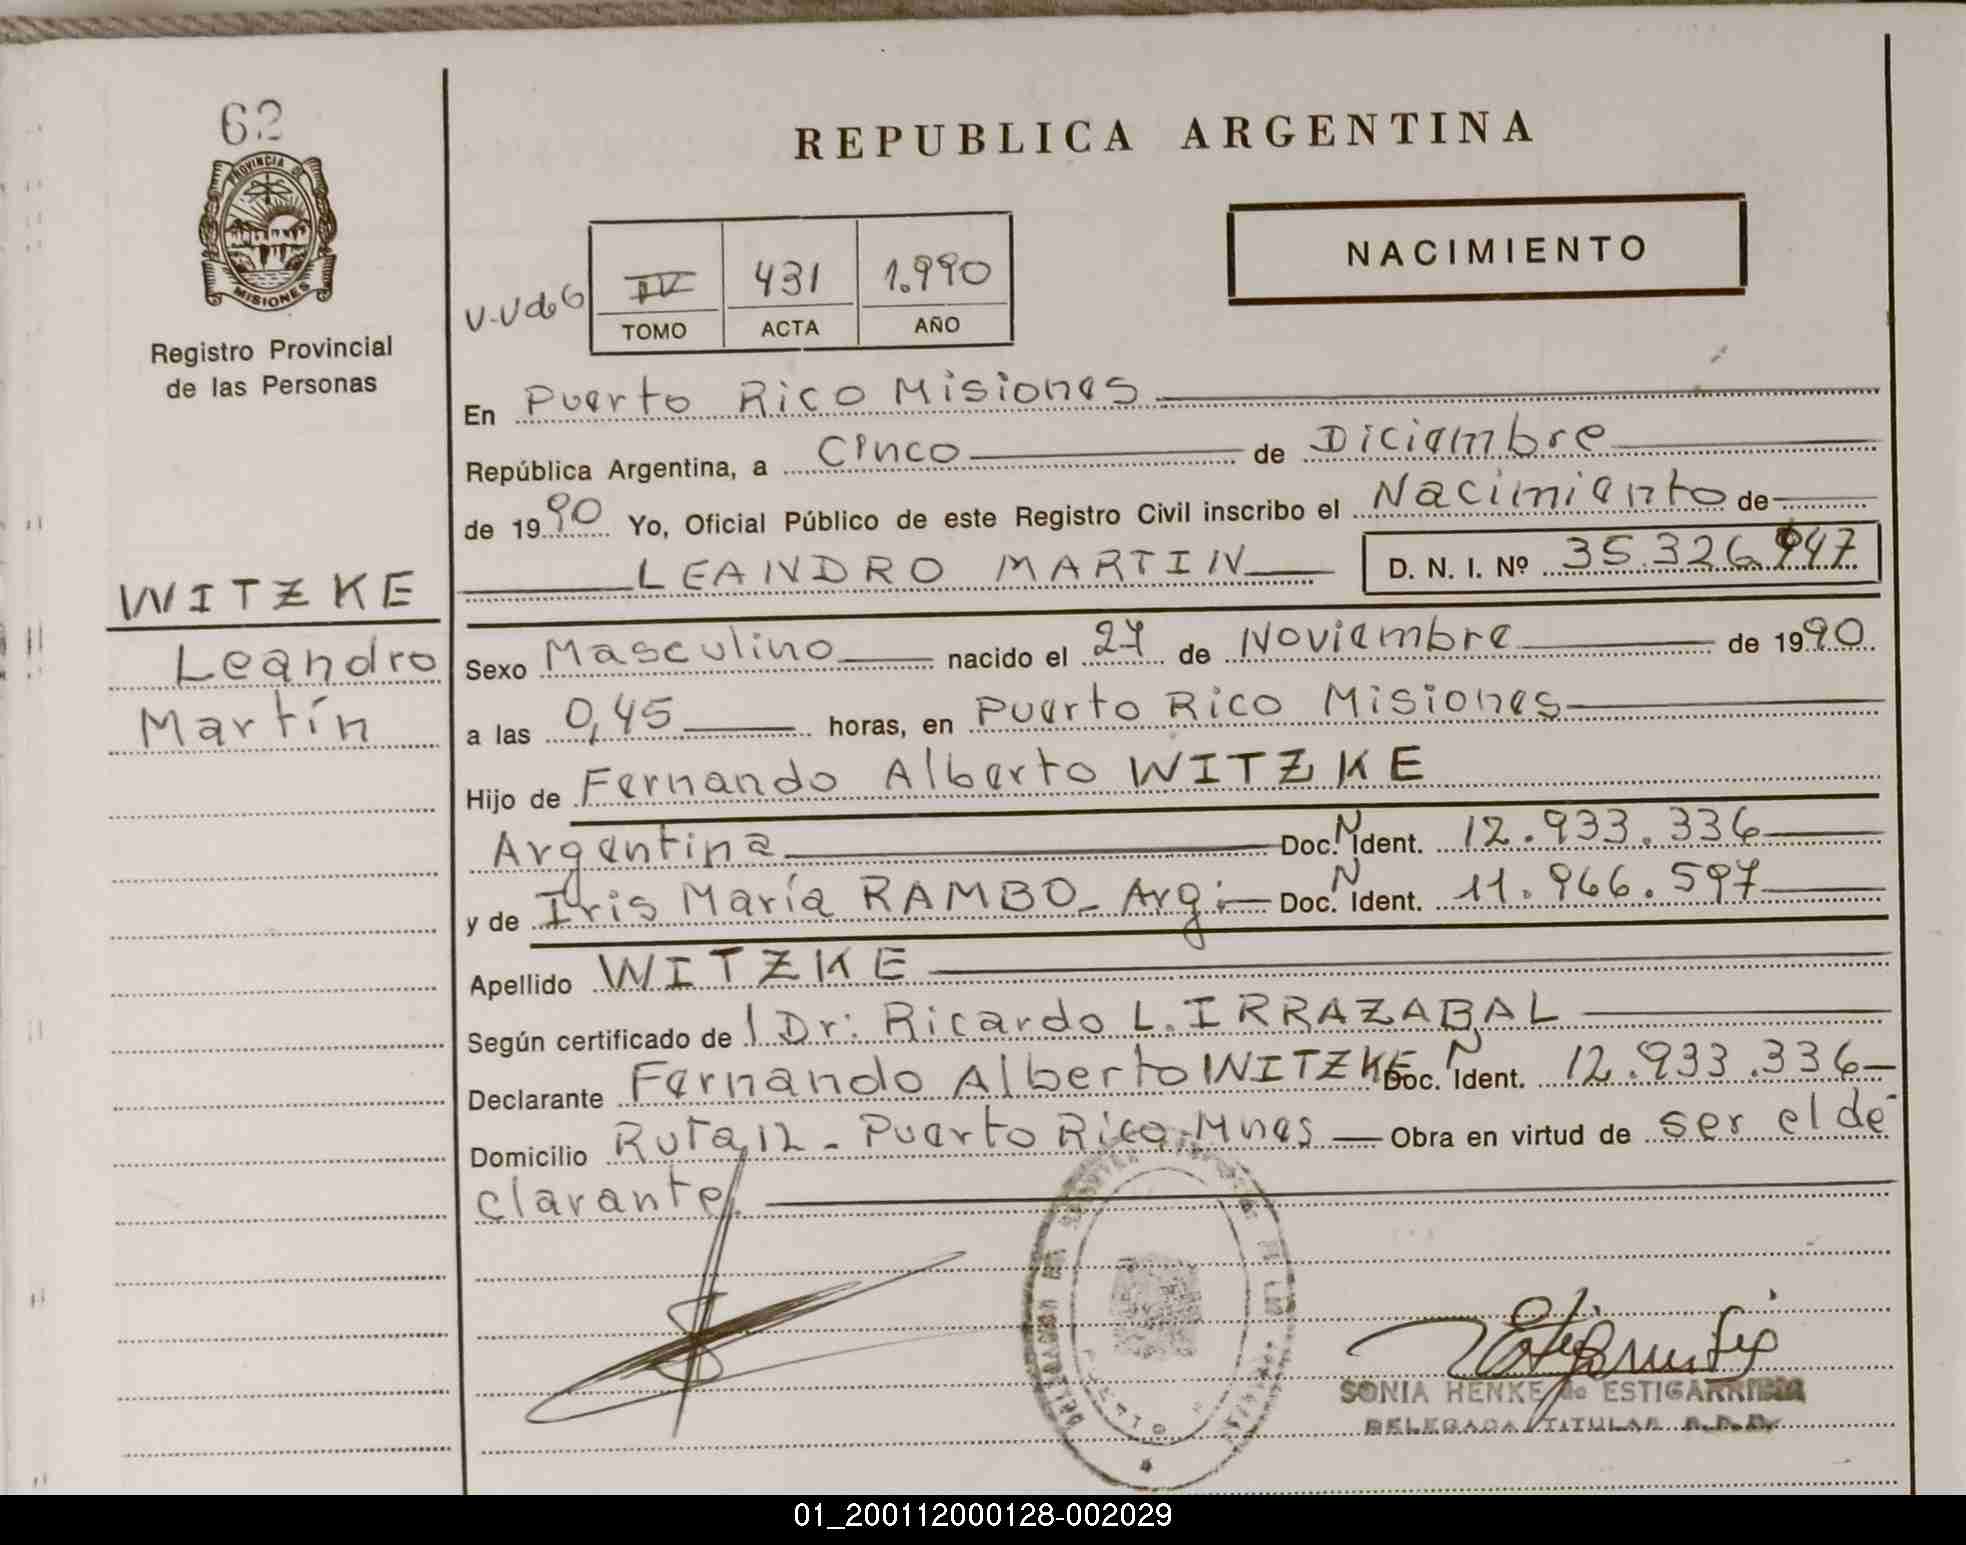 62
PROVINCIA DE
MISIONES
Registro Provincial
de las Personas
WITZKE
Leandro
Martín
REPUBLICA ARGENTINA
NACIMIENTO
V-V de G
IV 431 1.990
TOMO ACTA AÑO
En Puerto Rico Misiones
República Argentina, a Cinco de Diciembre
de 1990 Yo, Oficial Público de este Registro Civil inscribo el Nacimiento de
LEANDRO MARTIN D. N. I. Nº 35.326.947
Sexo Masculino nacido el 27 de Noviembre de 1990
a las 0,45 horas, en Puerto Rico Misiones
Hijo de Fernando Alberto WITZKE
Argentina Doc. N Ident. 12.933.336
y de Iris María RAMBO - Arg: Doc. N Ident. 11.966.597
Apellido WITZKE
Según certificado de l Dr: Ricardo L. IRRAZABAL
Declarante Fernando Alberto WITZKE Doc. N Ident. 12.933.336
Domicilio Ruta 12 - Puerto Rico - Mnes Obra en virtud de ser el de
clarante.
SONIA HENKE de ESTIGARRIBIA
DELEGADA TITULAR R.P.P.
01_200112000128-002029